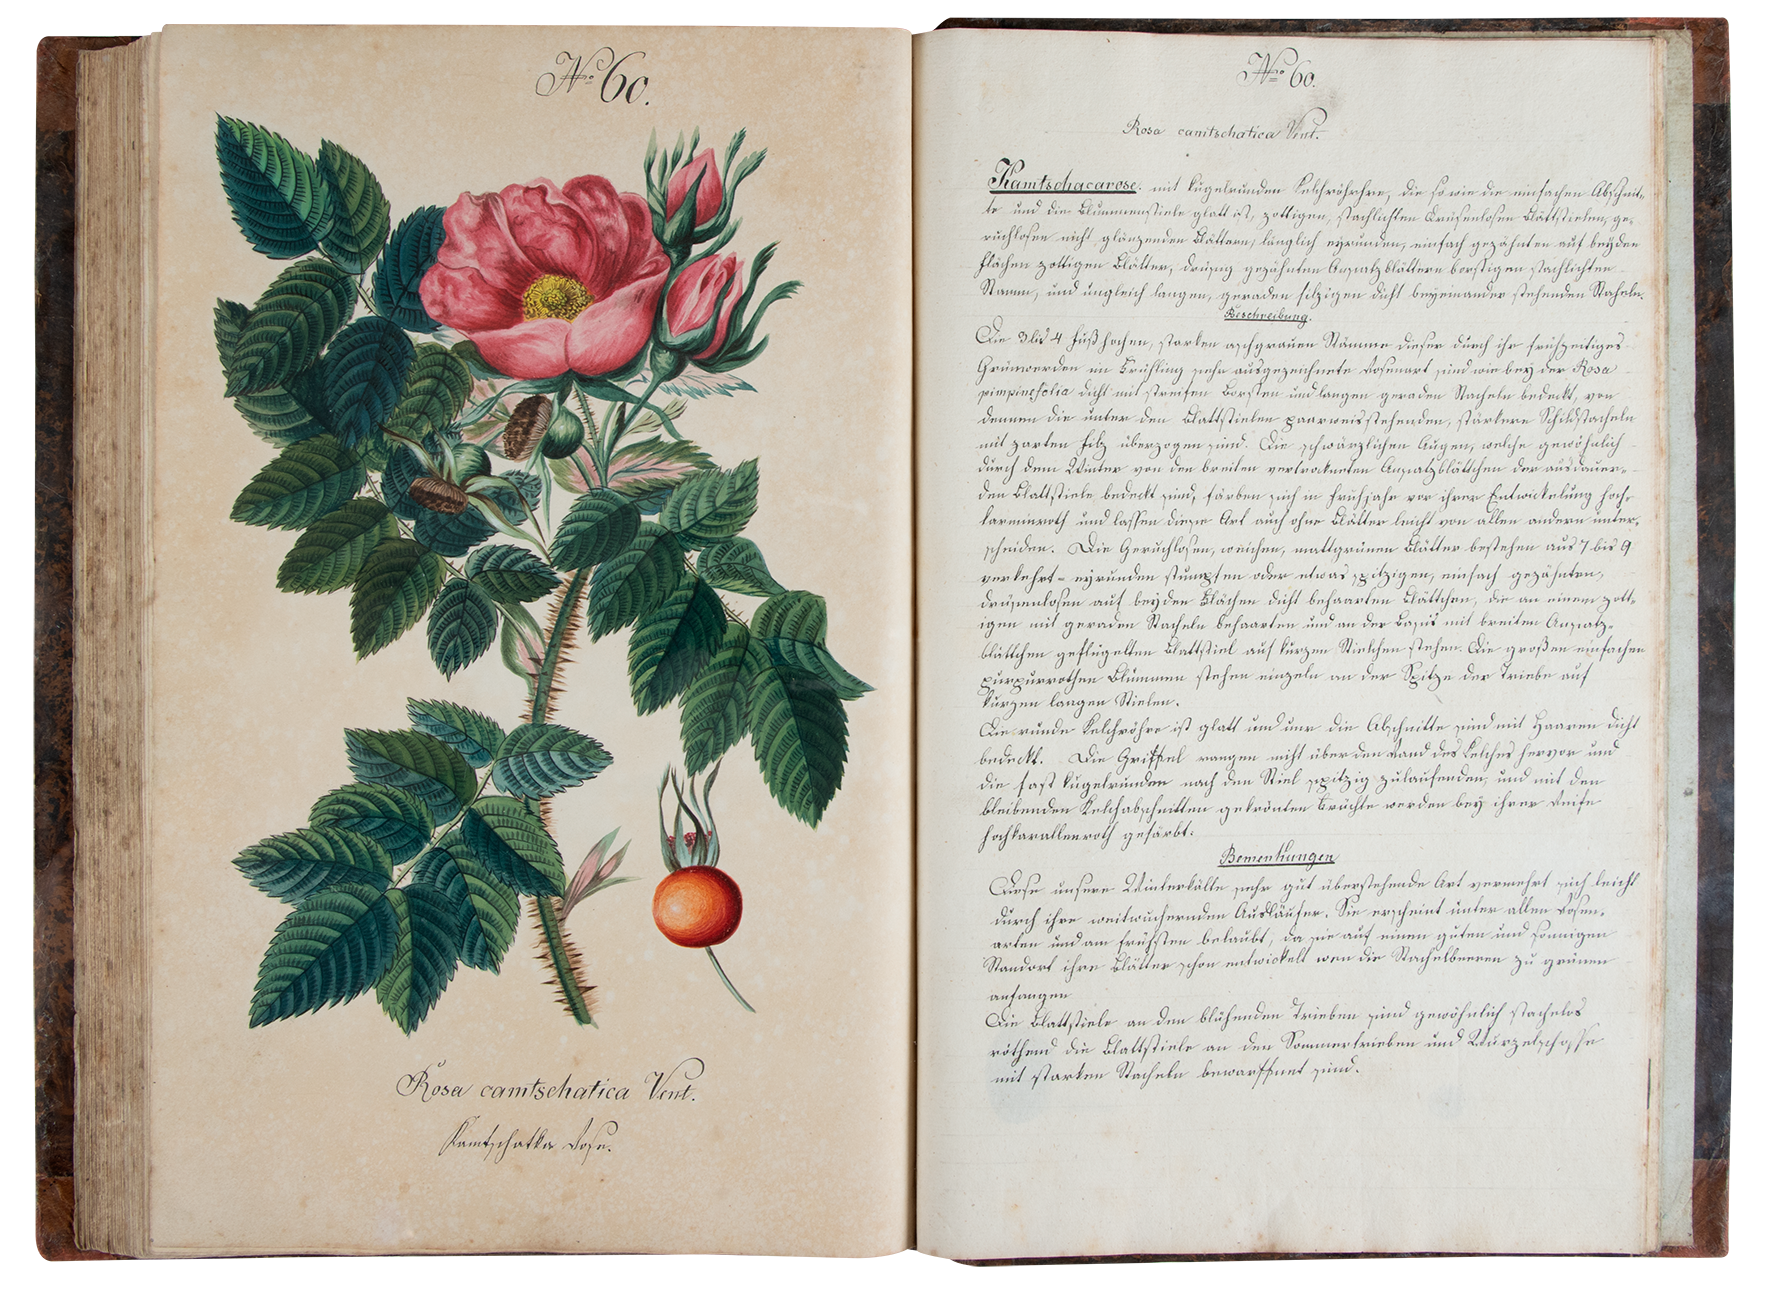 No 60.
Rosa camtschatica Vent.
Kamtschatka Rose.
No 60.
Rosa camtschatica Vent.
Kamtschacarose. mit kugelrunden Kelchröhrhre, die so wie die einfachen Abschnit-
te und die Blummenstiele glatt ist, zottigen, stachlichten drüsenlosen Blattstielen, ge-
ruchlosen nicht glänzenden Blättern, länglich eyrunden, einfach gezähnten auf beyden
Flächen zottigen Blätter, drüsig gezähnten Ansatzblättern borstigen stachlichten
Stamm, und ungleich langen, geraden filzigen dicht beyeinander stehenden Stacheln.
Beschreibung.
Die 3 bis 4 Fuß hohen, starken aschgrauen Stämme dieser durch ihr frühzeitiges
Grünwerden im Frühling sehr ausgezeichnete Rosenart sind wie bey der Rosa
pimpinefolia dicht mit streifen Borsten und langen geraden Stacheln bedeckt, von
dennen die unter den Blattstielen paarweisstehenden, stärkere Schildstacheln
mit zarten Filz überzogen sind. Die schwärzlichen Augen, welche gewöhnlich
durch dem Winter von den breiten vertrockneten Ansatzblättchen der ausdauer-
den Blattstiele bedeckt sind, färben sich in Frühjahr vor ihrer Entwickelung hoch-
karminroth und lassen diese Art auch ohne Blätter leicht von allen andern unter-
scheiden. Die Geruchlosen, weichen, mattgrünen Blätter bestehen aus 7 bis 9
verkehrt-eyrunden stumpfen oder etwas spitzigen, einfach gezähnten,
drüsenlosen auf beyden Flächen dicht behaarten Blättchen, die an einem zott-
igen mit geraden Stacheln behaarten und an der Basis mit breiten Ansatz-
blättchen geflügelten Blattstiel auf kurzen Stielchen stehen. Die großen einfachen
purpurrothen Blummen stehen einzeln an der Spitze der Triebe auf
kurzen langen Stielen.
Die runde Kelchröhre ist glatt und nur die Abschnitte sind mit Haaren dicht
bedeckt. Die Griffel rangen nicht über den Rand des Kelches hervor und
die fast kugelrunden nach den Stiel spitzig zulaufenden, und mit den
bleibenden Kelchabschnitten gekrönten Früchte werden bey ihrer Reife
hochkarallenroth gefärbt.
Bemerkungen
Diese unsere Winterkälte sehr gut überstehende Art vermehrt sich leicht
durch ihre weitwuchernden Ausläufer. Sie erscheint unter allen Rosen-
arten und am frühsten belaubt, da sie auf einen guten und sonnigen
Standort ihre Blätter schon entwickelt wen die Stachelbeeren zu grünen
anfangen
Die Blattstiele an den blühenden Trieben sind gewöhnlich stachelos
röthend die Blattstiele an den Sommertrieben und Wurzelschosse
mit starken Stacheln bewarffnet sind.